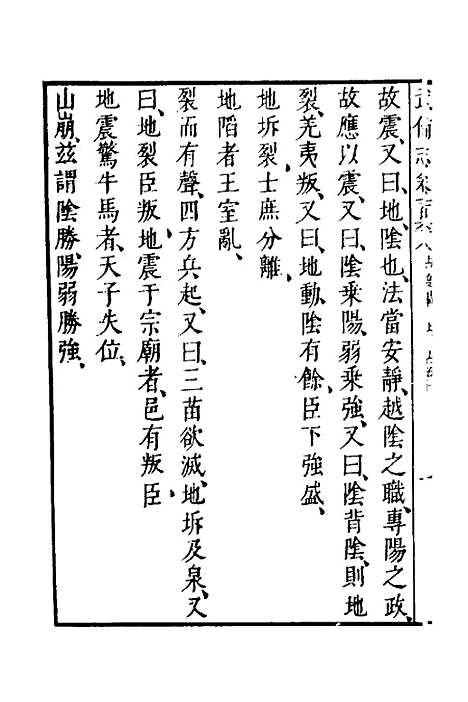 武備志卷一百六八
故震、又曰、地、陰也、法當安靜、越陰之職、專陽之政、
故應以震、又曰、陰乘陽、弱乘強、又曰、陰背陰、則地
裂、羌夷叛、又曰、地動、陰有餘、臣下強盛、
地坼裂、士庶分離、
地陷者王室亂、
裂而有聲、四方兵起、又曰、三苗欲滅、地坼及泉、又
曰、地裂臣叛、地震于宗廟者、邑有叛臣、
地震驚牛馬者、天子失位、
山崩、兹謂陰勝陽、弱勝強、